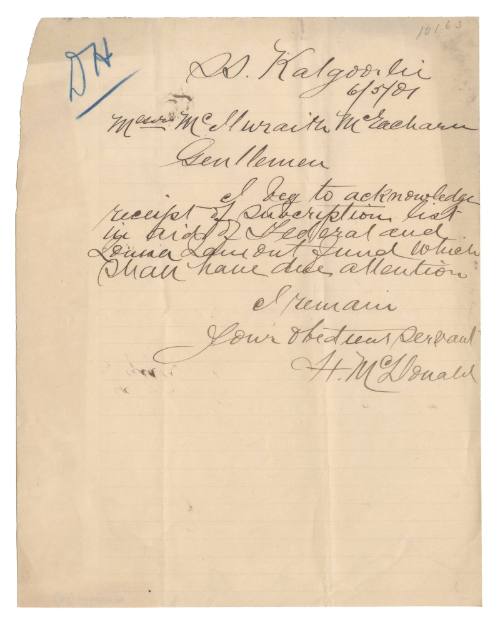 10163
DH
SS. Kalgoorlie
6/5/01
Messrs McIlwraith McEacharn
Gentlemen
I beg to acknowledge
receipt of subscription list
in aid of Federal and
Louisa Lamont fund which
shall have due attention
I remain
Your obedient servant
H. McDonald